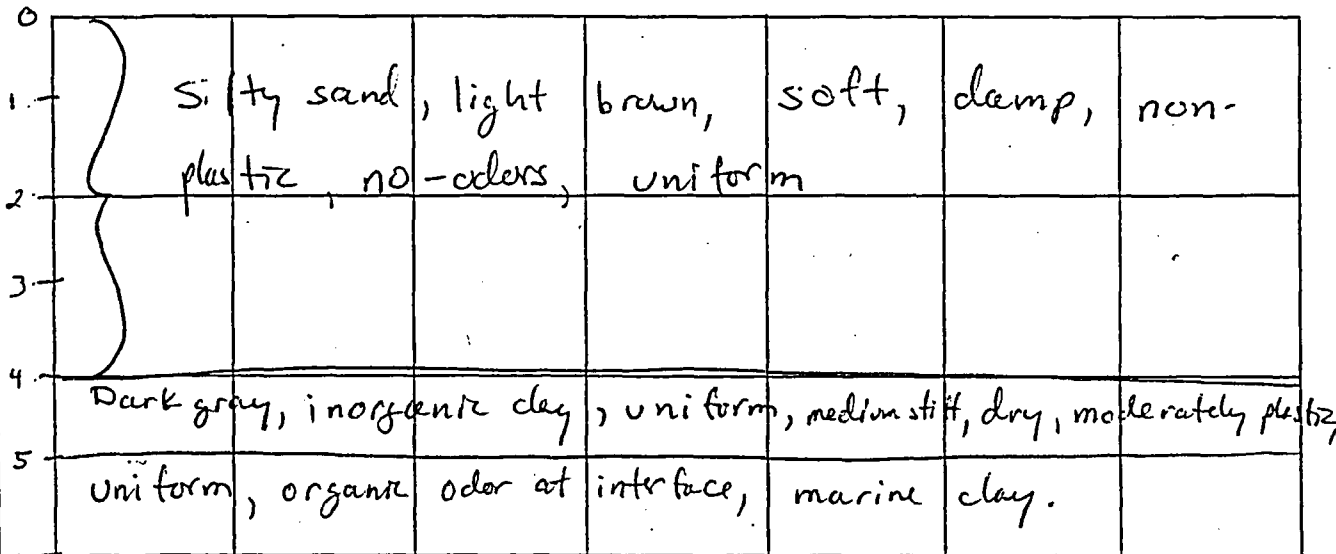 0
1. Silty sand, light brown, soft, damp, non-
plastic, no-odors, uniform
2
3.
4.
Dark gray, inorganic clay, uniform, medium stiff, dry, moderately plastic,
5
uniform, organic odor at interface, marine clay.